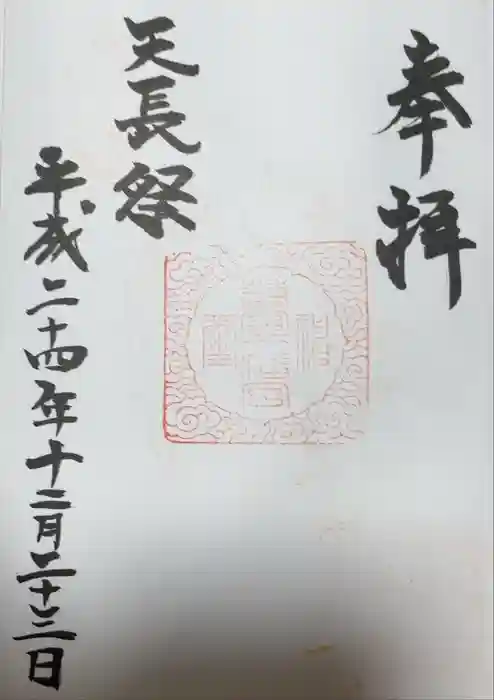 奉拝
天長祭
平成二十四年十二月二十三日